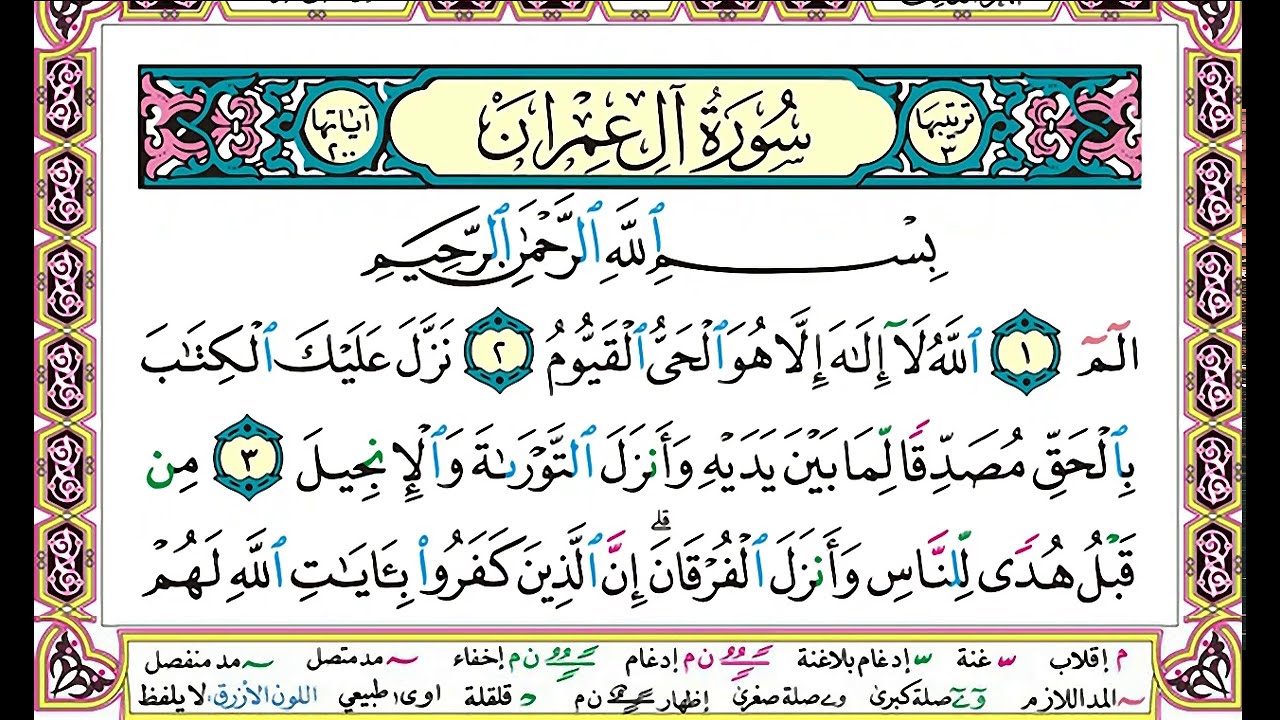 ترتيبها ٣ سُورَةُ آلِ عِمْرَانَ آياتها ٢٠٠
بِسْمِ ٱللَّهِ ٱلرَّحْمَٰنِ ٱلرَّحِيمِ
الٓمٓ ١ ٱللَّهُ لَآ إِلَٰهَ إِلَّا هُوَ ٱلْحَىُّ ٱلْقَيُّومُ ٢ نَزَّلَ عَلَيْكَ ٱلْكِتَٰبَ
بِٱلْحَقِّ مُصَدِّقًا لِّمَا بَيْنَ يَدَيْهِ وَأَنزَلَ ٱلتَّوْرَىٰةَ وَٱلْإِنجِيلَ ٣ مِن
قَبْلُ هُدًى لِّلنَّاسِ وَأَنزَلَ ٱلْفُرْقَانَ ۗ إِنَّ ٱلَّذِينَ كَفَرُوا۟ بِـَٔايَٰتِ ٱللَّهِ لَهُمْ
م إقلاب غنة إدغام بلاغنة ن م إدغام ن م إخفاء مد متصل مد منفصل
المد اللازم صلة كبرى صلة صغرى إظهار ن م قلقلة اوى طبيعي اللون الأزرق: لا يلفظ